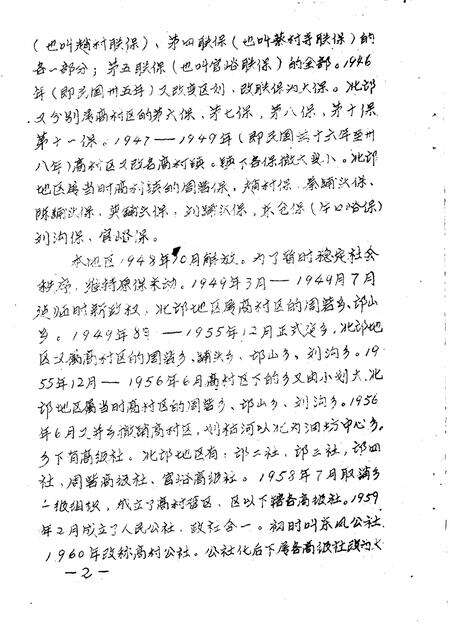 (也叫赵村联保)、第四联保(也叫蔡村寺联保)的
各一部分；第五联保(也叫官峪联保)的全部。1946
年(即民国卅五年)又改变区划，改联保为大保。北邙
又分别属高村区的第六保，第七保，第八保，第十保
第十一保。1947——1949年(即民国三十六年至卅
八年)高村区又改名高村镇。镇下各保微大变小。北邙
地区属当时高村镇的周砦保、胡村保、秦铺头保、
陈铺头保，樊铺头保，刘铺头保，东仓保(牛口峪保)
刘沟保、官峪保。
本地区1948年10月解放。为了暂时稳定社会
秩序，维持原保未动。1949年3月——1949年7月
成临时新政权，北邙地区属高村区的周砦乡、邙山
乡。1949年8月——1955年12月正式变乡，北邙地
区又属高村区的周砦乡、铺头乡、邙山乡、刘沟乡。19
55年12月——1956年6月高村区下的乡又由小划大，北
邙地区属当时高村区的周砦乡、邙山乡、刘沟乡。1956
年6月又并乡撤销高村区，划枯河以北为油坊中心乡。
乡下有高级社。北邙地区有：邙二社，邙三社，邙四
社，周砦高级社、官峪高级社。1958年7月取消乡
一级组织，成立了高村管区，区以下辖各高级社。1959
年2月成立了人民公社，政社合一。初时叫东风公社，
1960年改称高村公社。公社化后下属各高级社改为大
—2—